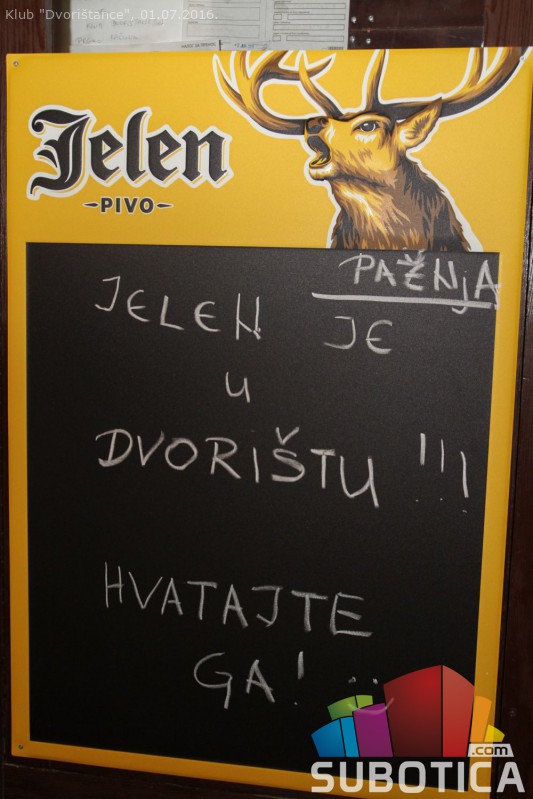 Klub "Dvorištance", 01.07.2016.
Jelen
PIVO
PAŽNjA
JELEN JE
U
DVORIŠTU !!!
HVATAJTE
GA!
.com
SUBOTICA